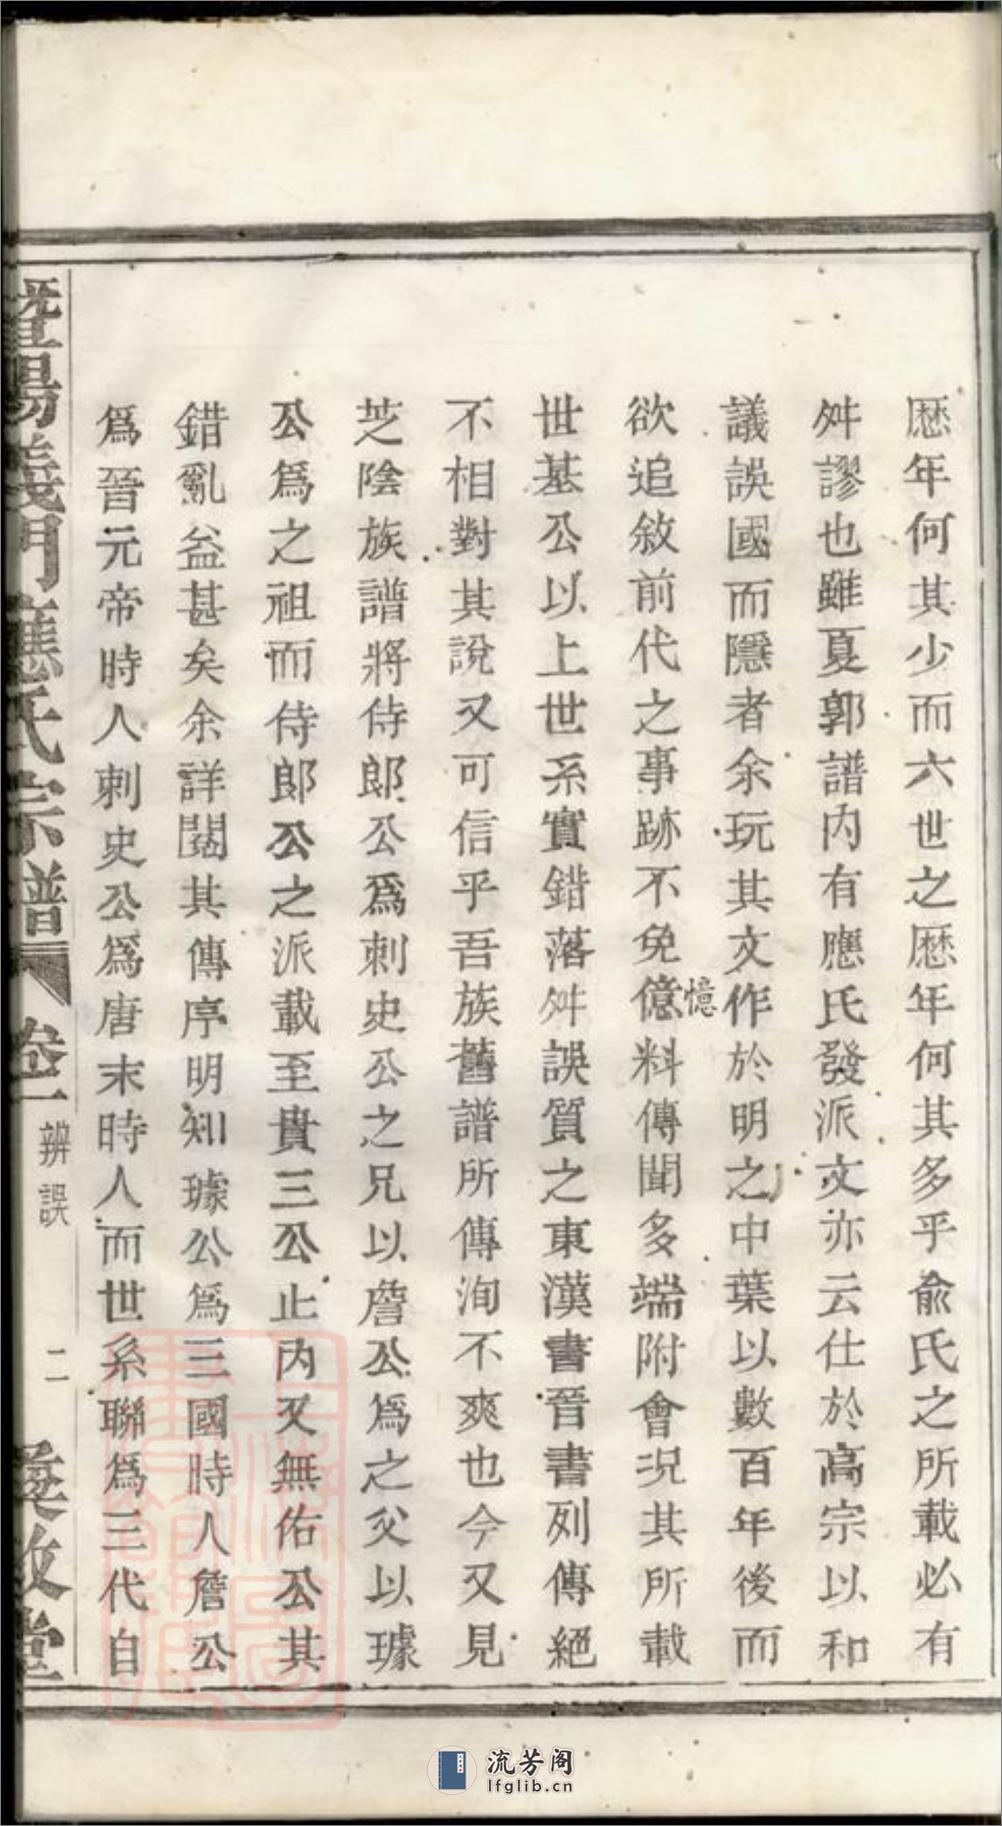 歷年何其少而六世之歷年何其多乎俞氏之所載必有
舛謬也雖夏郭譜內有應氏發派文亦云仕於高宗以和
議誤國而隱者余玩其文作於明之中葉以數百年後而
欲追敘前代之事跡不免億料傳聞多端附會況其所載
憶
世基公以上世系實錯落舛誤質之東漢書晉書列傳絕
不相對其說又可信乎吾族舊譜所傳洵不爽也今又見
芝陰族譜將侍郎公為刺史公之兄以詹公為之父以璩
公為之祖而侍郎公之派載至貴三公止內又無佑公其
錯亂益甚矣余詳閱其傳序明知璩公為三國時人詹公
為晉元帝時人刺史公為唐末時人而世系聯為三代自
暨陽義門應氏宗譜 卷一 辨誤 二
流芳阁
lfglib.cn